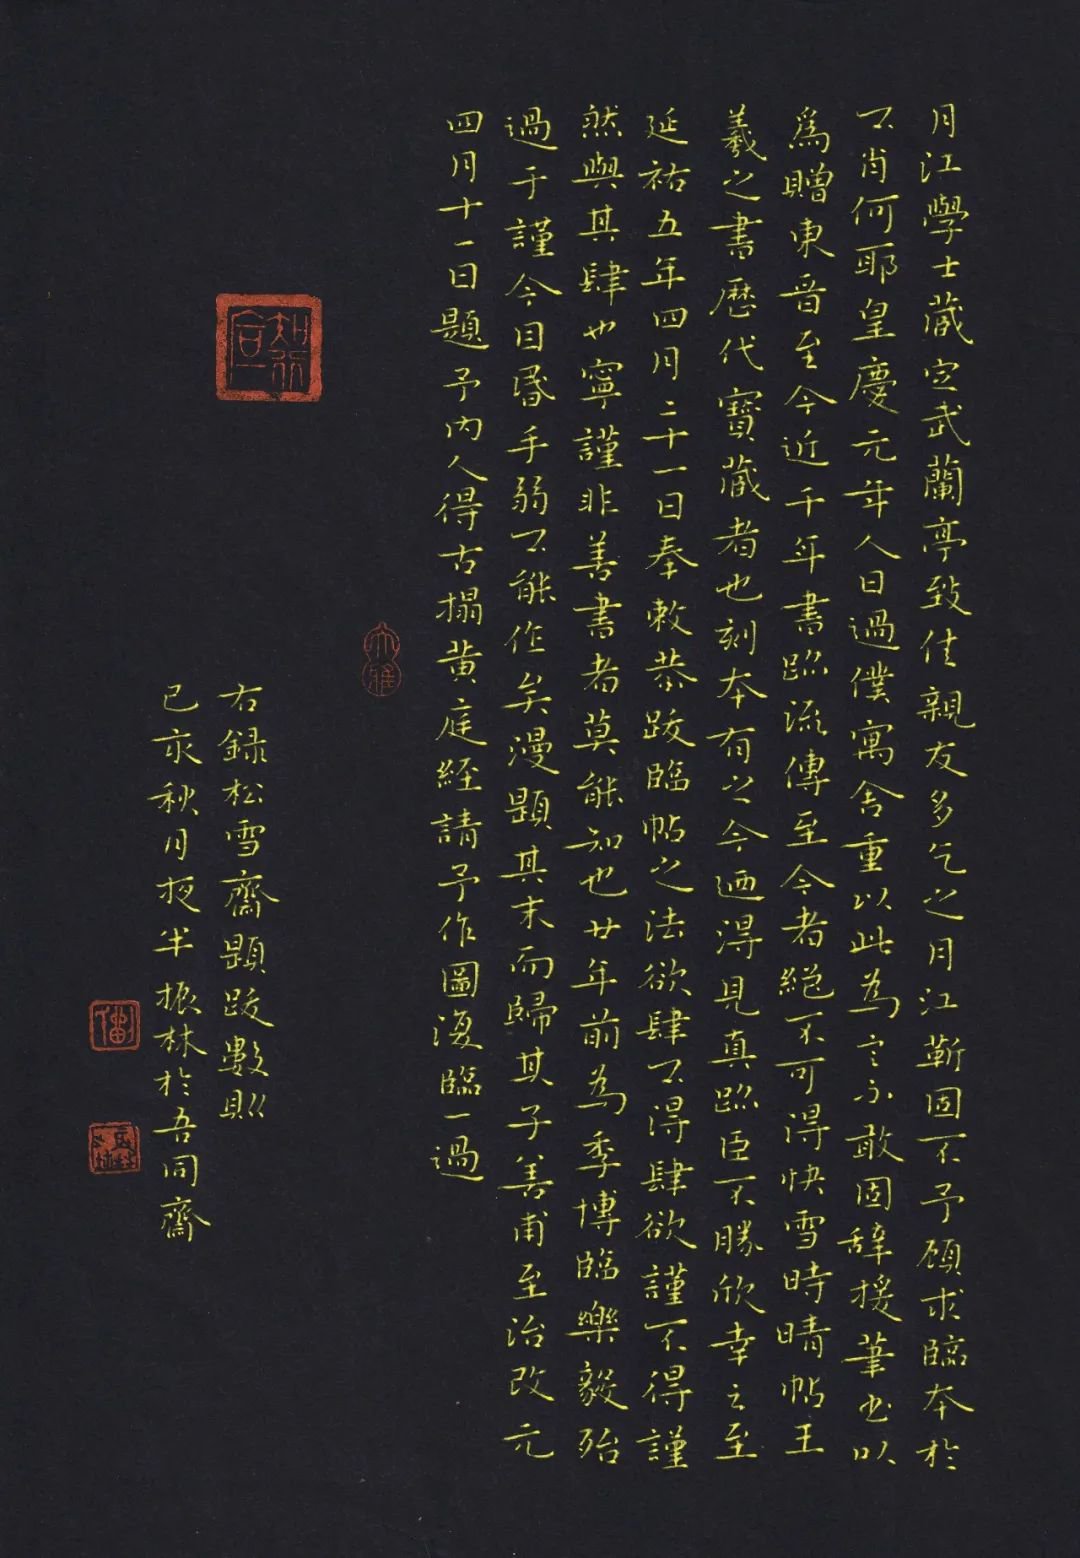 月江學士蔵定武蘭亭致佳親友多乞之月江靳固不予顧求臨本於
不肖何耶皇慶元年人日過僕寓舍重以此為言不敢固辞援筆書以
爲贈東晉至今近千年書跡流傳至今者絕不可得快雪時晴帖王
羲之書歷代寶蔵者也刻本有之今迺得見真跡臣不勝欣幸之至
延祐五年四月二十一日奉敕恭跋臨帖之法欲肆不得肆欲謹不得謹
然與其肆也寧謹非善書者莫能知也廿年前為季博臨樂毅殆
過于謹今目昏手弱不能作矣漫題其末而歸其子善甫至治改元
四月十一日題予内人得古搨黄庭經請予作圖復臨一過
右録松雪齋題跋數則
己亥秋月夜半振林於吾同齋
知行合一
大雅
劉